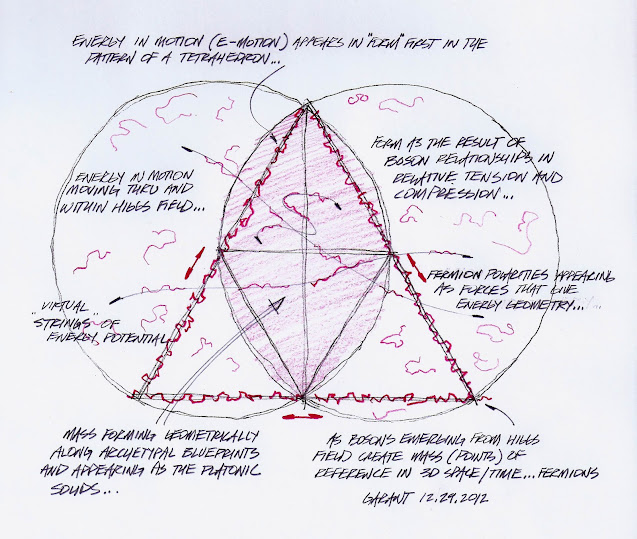 ENERGY IN MOTION (E-MOTION) APPEARS IN "FORM" FIRST IN THE
PATTERN OF A TETRAHEDRON...
FORM AS THE RESULT OF
BOSON RELATIONSHIPS IN
RELATIVE TENSION AND
COMPRESSION...
ENERGY IN MOTION
MOVING THRU AND
WITHIN HIGGS FIELD...
FERMION POLARITIES APPEARING
AS FORCES THAT GIVE
ENERGY GEOMETRY...
"VIRTUAL"
STRINGS OF
ENERGY POTENTIAL
MASS FORMING GEOMETRICALLY
ALONG ARCHETYPAL BLUEPRINTS
AND APPEARING AS THE PLATONIC
SOLIDS...
AS BOSONS EMERGING FROM HIGGS
FIELD CREATE MASS (POINTS) OF
REFERENCE IN 3D SPACE/TIME...FERMIONS
GARANT 12.29.2012